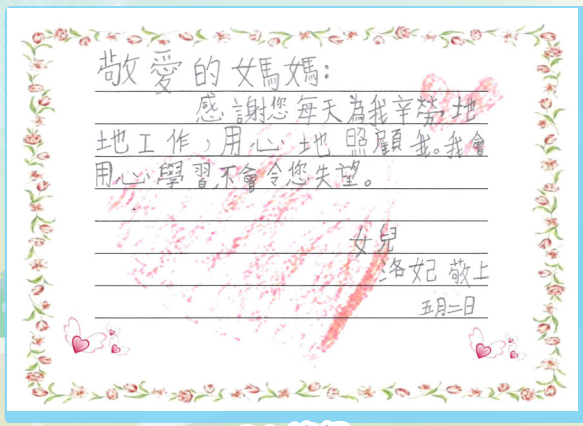 敬愛的媽媽：
感謝您每天為我辛勞地
地工作，用心地照顧我。我會
用心學習，不會令您失望。
女兒
洛妃 敬上
五月二日